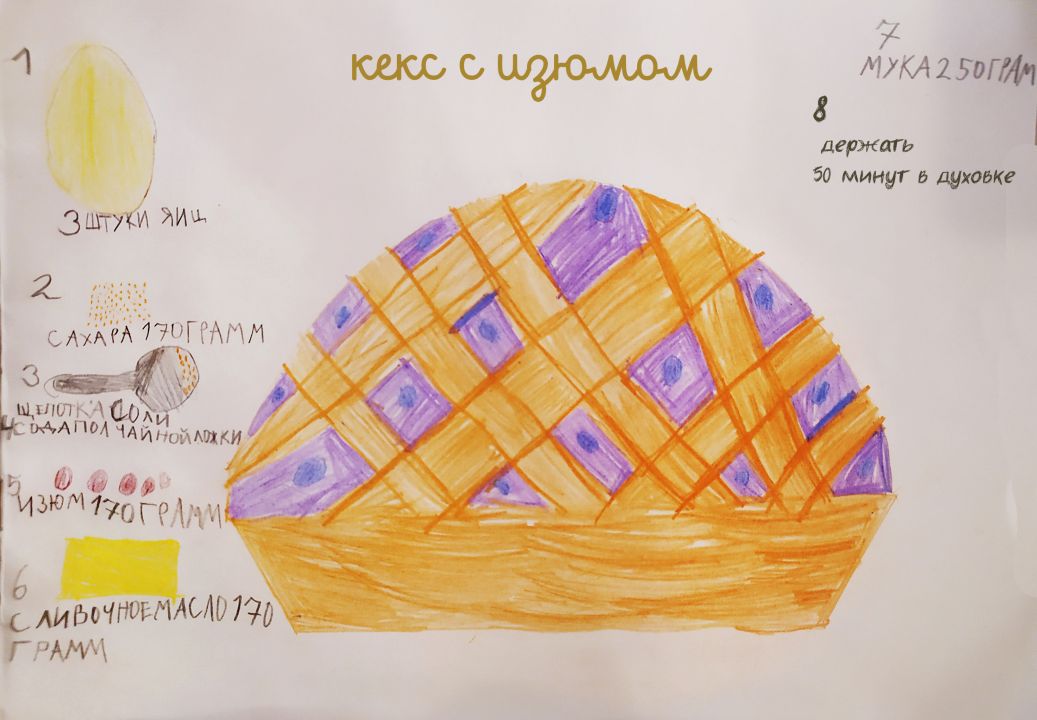 кекс с изюмом
1
3 ШТУКИ ЯИЦ
2
САХАРА 170 ГРАММ
3
ЩЕПОТКА СОЛИ
4 СОДА ПОЛ ЧАЙНОЙ ЛОЖКИ
5
ИЗЮМ 170 ГРАММ
6
СЛИВОЧНОЕ МАСЛО 170
ГРАММ
7
МУКА 250 ГРАМ
8
держать
50 минут в духовке